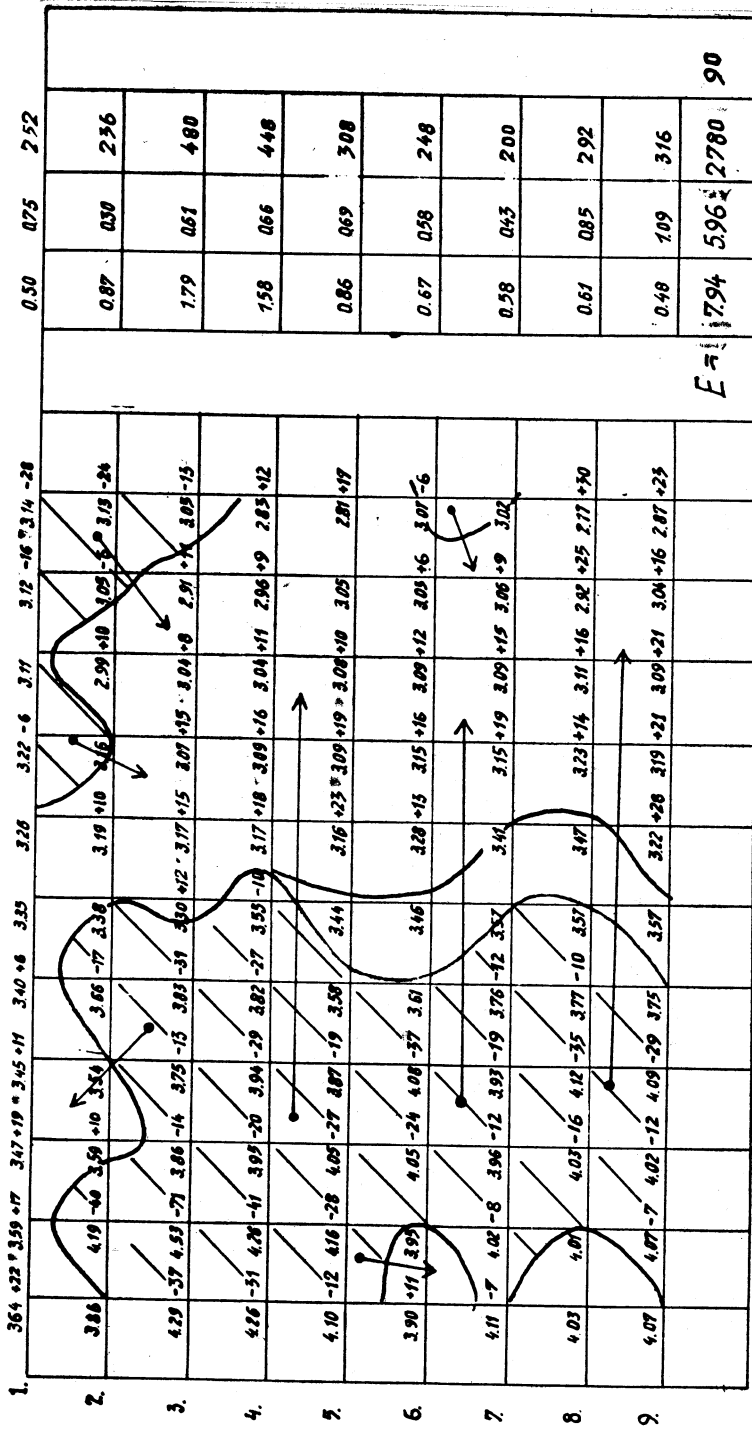 1. 3.64 +22 3.59 +17 3.47 +19 3.45 +11 3.40 +6 3.35 3.26 3.22 -6 3.11 3.12 -16 3.14 -28 0.50 0.75 252
2. 3.86 4.19 -40 3.59 +10 3.54 3.66 -17 3.38 3.19 +10 3.16 2.99 +10 3.09 3.13 -24 0.87 0.30 236
3. 4.29 -37 4.53 -71 3.86 -14 3.75 -13 3.83 -31 3.30 +12 3.17 +15 3.07 +15 3.04 +8 2.91 3.05 -13 1.79 0.61 480
4. 4.26 -31 4.26 -41 3.95 -20 3.94 -29 3.82 -27 3.55 -10 3.17 +18 3.09 +16 3.04 +11 2.96 +9 2.83 +12 1.58 0.66 448
5. 4.10 -12 4.16 -28 4.05 -27 3.87 -19 3.58 3.44 3.16 +23 3.09 +19 3.08 +10 3.05 2.81 +17 0.86 0.69 308
6. 3.90 +11 3.95 4.05 -24 4.08 -37 3.61 3.46 3.28 +13 3.15 +16 3.09 +12 3.03 +6 3.07 -6 0.67 0.58 248
7. 4.11 -7 4.02 -8 3.96 -12 3.93 -19 3.76 -12 3.57 3.41 3.15 +19 3.09 +15 3.06 +9 3.02 0.58 0.43 200
8. 4.03 4.01 4.03 -16 4.12 -35 3.77 -10 3.57 3.47 3.23 +14 3.11 +16 2.92 +25 2.77 +30 0.61 0.85 292
9. 4.07 4.07 -7 4.02 -12 4.09 -29 3.75 3.57 3.22 +28 3.19 +21 3.09 +21 3.04 +16 2.87 +23 0.48 1.09 316
E = 7.94 5.96 2780 90